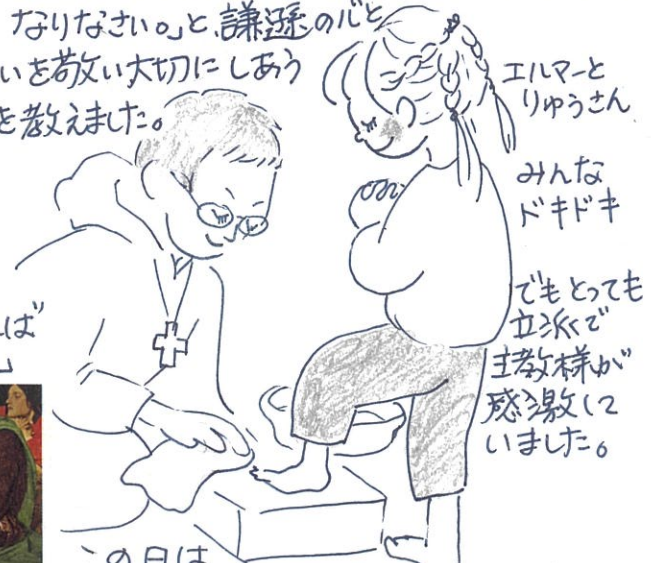 なりなさい。」と、謙遜の心と
いを敬い大切にしあう
を教えました。
エルマーと
りゅうさん
みんな
ドキドキ
でもとっても
立派で
主教様が
感激して
いました。
ば
」
この日は